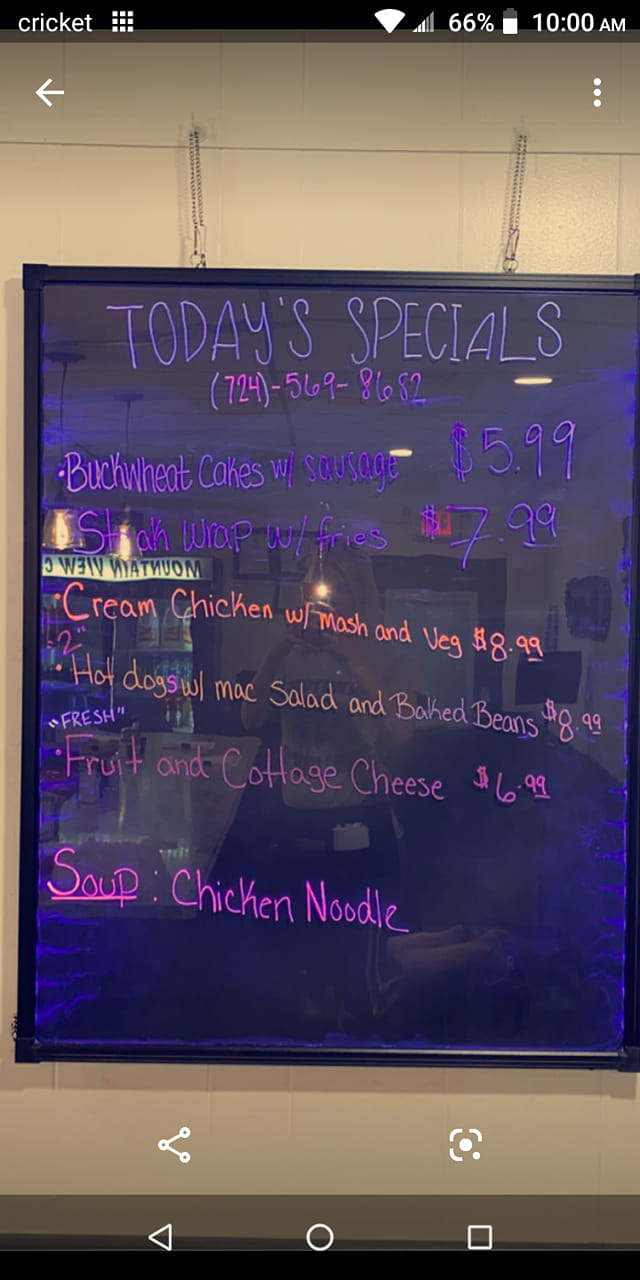 cricket 66% 10:00 AM
TODAY'S SPECIALS
(724)-569-8682
·Buckwheat Cakes w/ sausage $5.99
·Steak wrap w/ fries $7.99
MOUNTAIN VIEW C
·Cream Chicken w/ mash and Veg $8.99
"2"
·Hot dogs w/ mac Salad and Baked Beans $8.99
"FRESH"
·Fruit and Cottage Cheese $6.99
Soup: Chicken Noodle